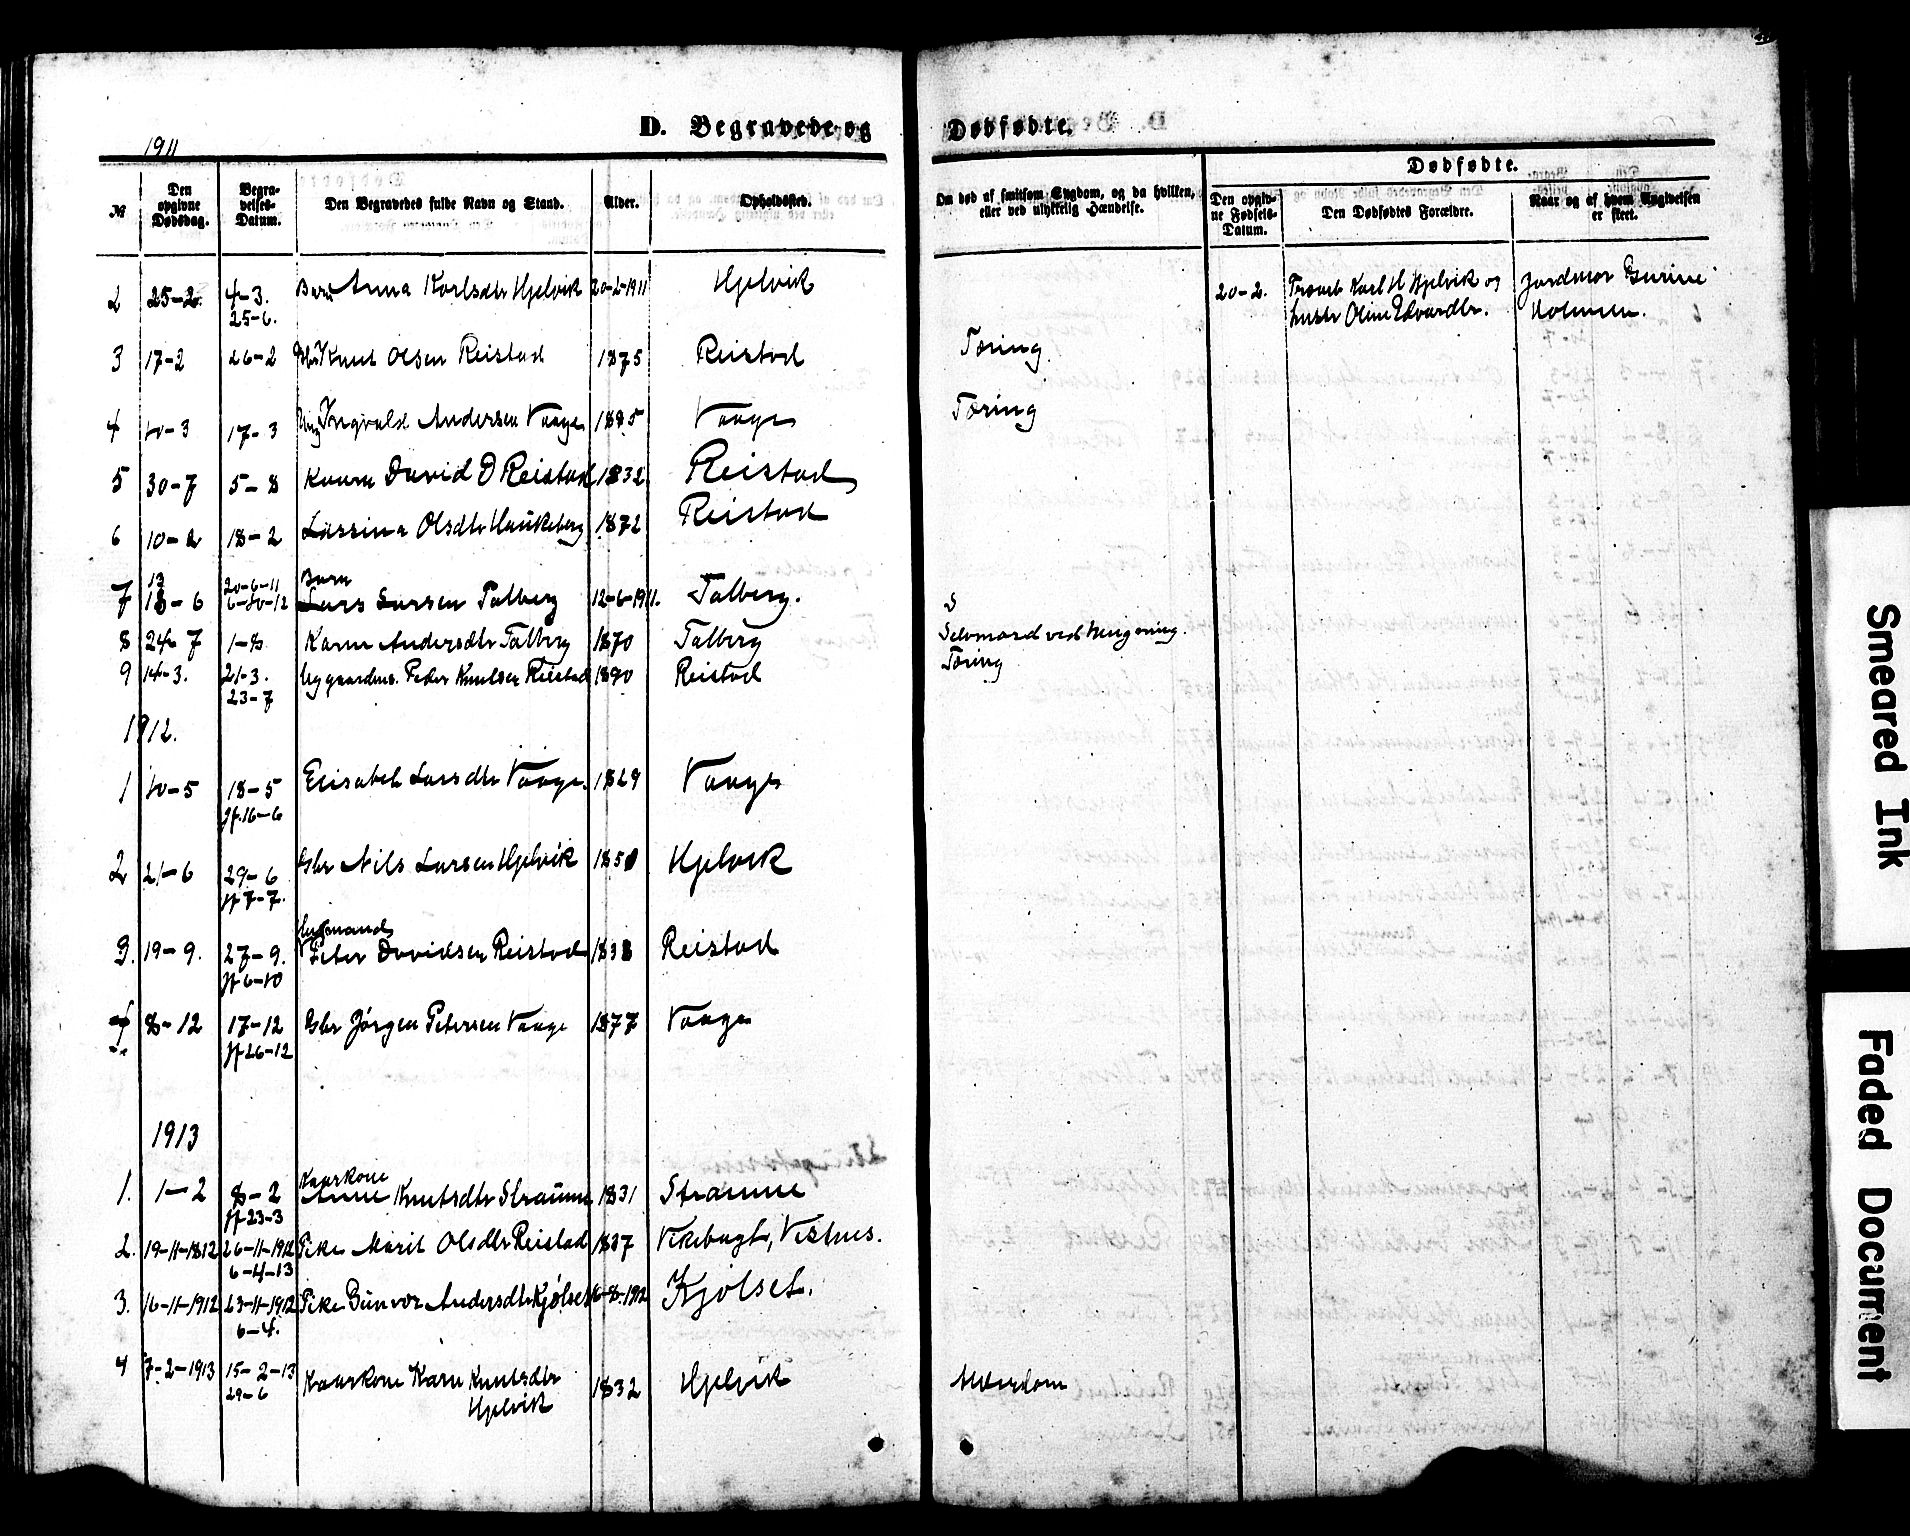 D. Begravede og Dødfødte.
1911
№ Den opgivne Dødsdag. Begravelses-Datum. Den Begravedes fulde Navn og Stand. Alder. Opholdssted. Om død af smitsom Sygdom, og da hvilken, eller ved ulykkelig Hændelse.
Dødfødte.
Den opgivne Fødsels-Datum. Den Dødfødtes Forældre. Naar og af hvem Angivelsen er skeet.
2 25-2. 4-3. Barn Anna Karlsdtr Hjelvik 20-2-1911 Hjelvik 20-2. Karl H Hjelvik og Jordmor Gurine
25-6. hustr Oline Edvardtr. Holmem.
3 17-2 26-2 Knut Olsen Reistad 1875 Reistad Tæring
4 10-3 17-3 Ung Ingvald Andersen Vaage 1885 Vaage Tæring
5 30-7 5-8 Kaarm David D Reistad 1832 Reistad
6 10-2 18-2 Lassina Olsdtr Haukeberg 1872 Reistad
Barn
7 13-6 20-6-11 Lars Larsen Talberg 12-6-1911. Talberg.
6-10-12
8 24-7 1-8 Karen Andersdtr Talberg 1870 Talberg Selvmord ved hengning.
9 14-3. 21-3. Uggaardens. Peder Knutsen Reistad 1890 Reistad Tæring
23-7
1912.
1 10-5 18-5 Elisabeth Larsdtr Vaage. 1829 Vaage
Jf. 16-6
2 21-6 29-6 Gbr Nils Larsen Hjelvik 1850 Hjelvik
Jf 7-7.
Husmand
3. 19-9. 27-9. Peter Davidsen Reistad 1838 Reistad
Jf 6-10
4 8-12 17-12 Gbr Jørgen Petersen Vaage 1877 Vaage
Jf 26-12
1913
Kaarkone
1. 1-2 8-2 Anne Knutsdtr Straume 1831 Straume
Jf 23-3
2. 19-11-1812 26-11-1912 Pike Marit Olsdtr Reistad 1837 Vikebugt, Vestnes.
6-4-13
3. 16-11-1912 23-11-1912 Pike Gunvor Andersdtr Kjølset 6-8.1912 Kjølset.
6-4.
4 7-2-1913 15-2-13 Kaarkone Karn Knutsdtr 1832 Hjelvik Alderdom
29-6 Hjelvik
Smeared Ink
Faded Document